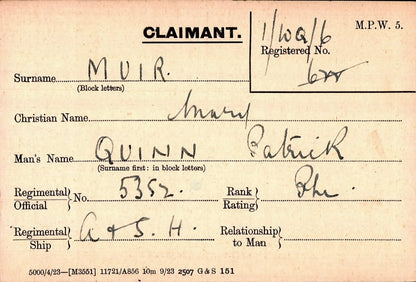 CLAIMANT.
M.P.W. 5.
1/WQ/6
Registered No.
Surname MUIR.
(Block letters)
Christian Name Mary
Man's Name QUINN Patrick
(Surname first: in block letters)
Regimental} No. 5352. Rank}
Official Rating}
Regimental} A & S. H. Relationship}
Ship to Man
5000/4/23—[M3551] 11721/A856 10m 9/23 2507 G & S 151